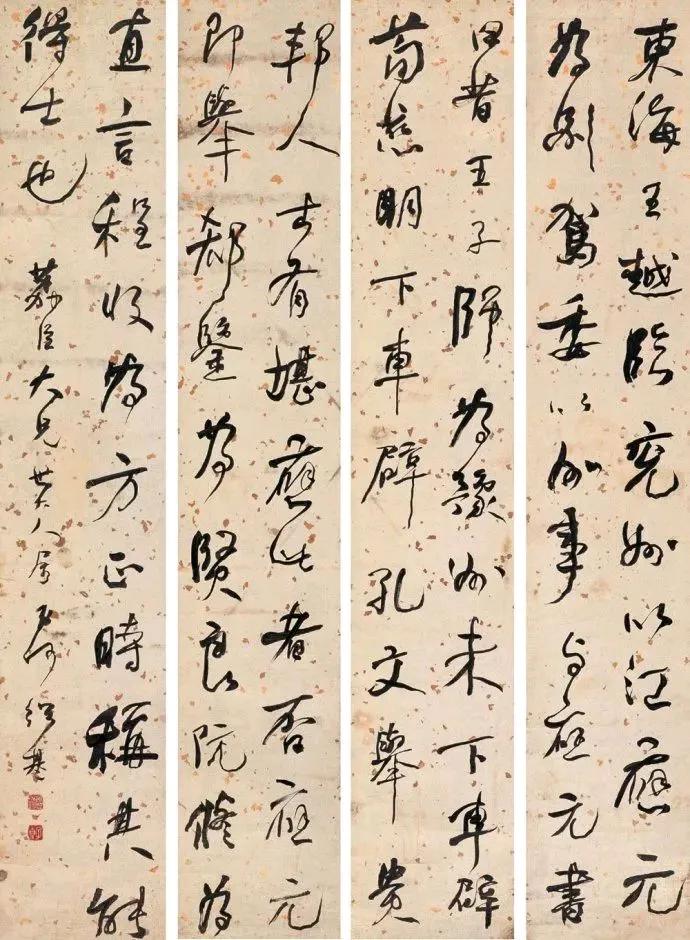 東海王越臨兗州以江應元
為別駕委以州事与應元書
曰昔王子師為豫州未下車辟
荀慈明下車辟孔文舉貴
邦人士有堪應此者否應元
即舉郗鑒為賢良阮脩為
直言程收為方正時稱其能
得士也 荔臣大兄世大人屬 何紹基